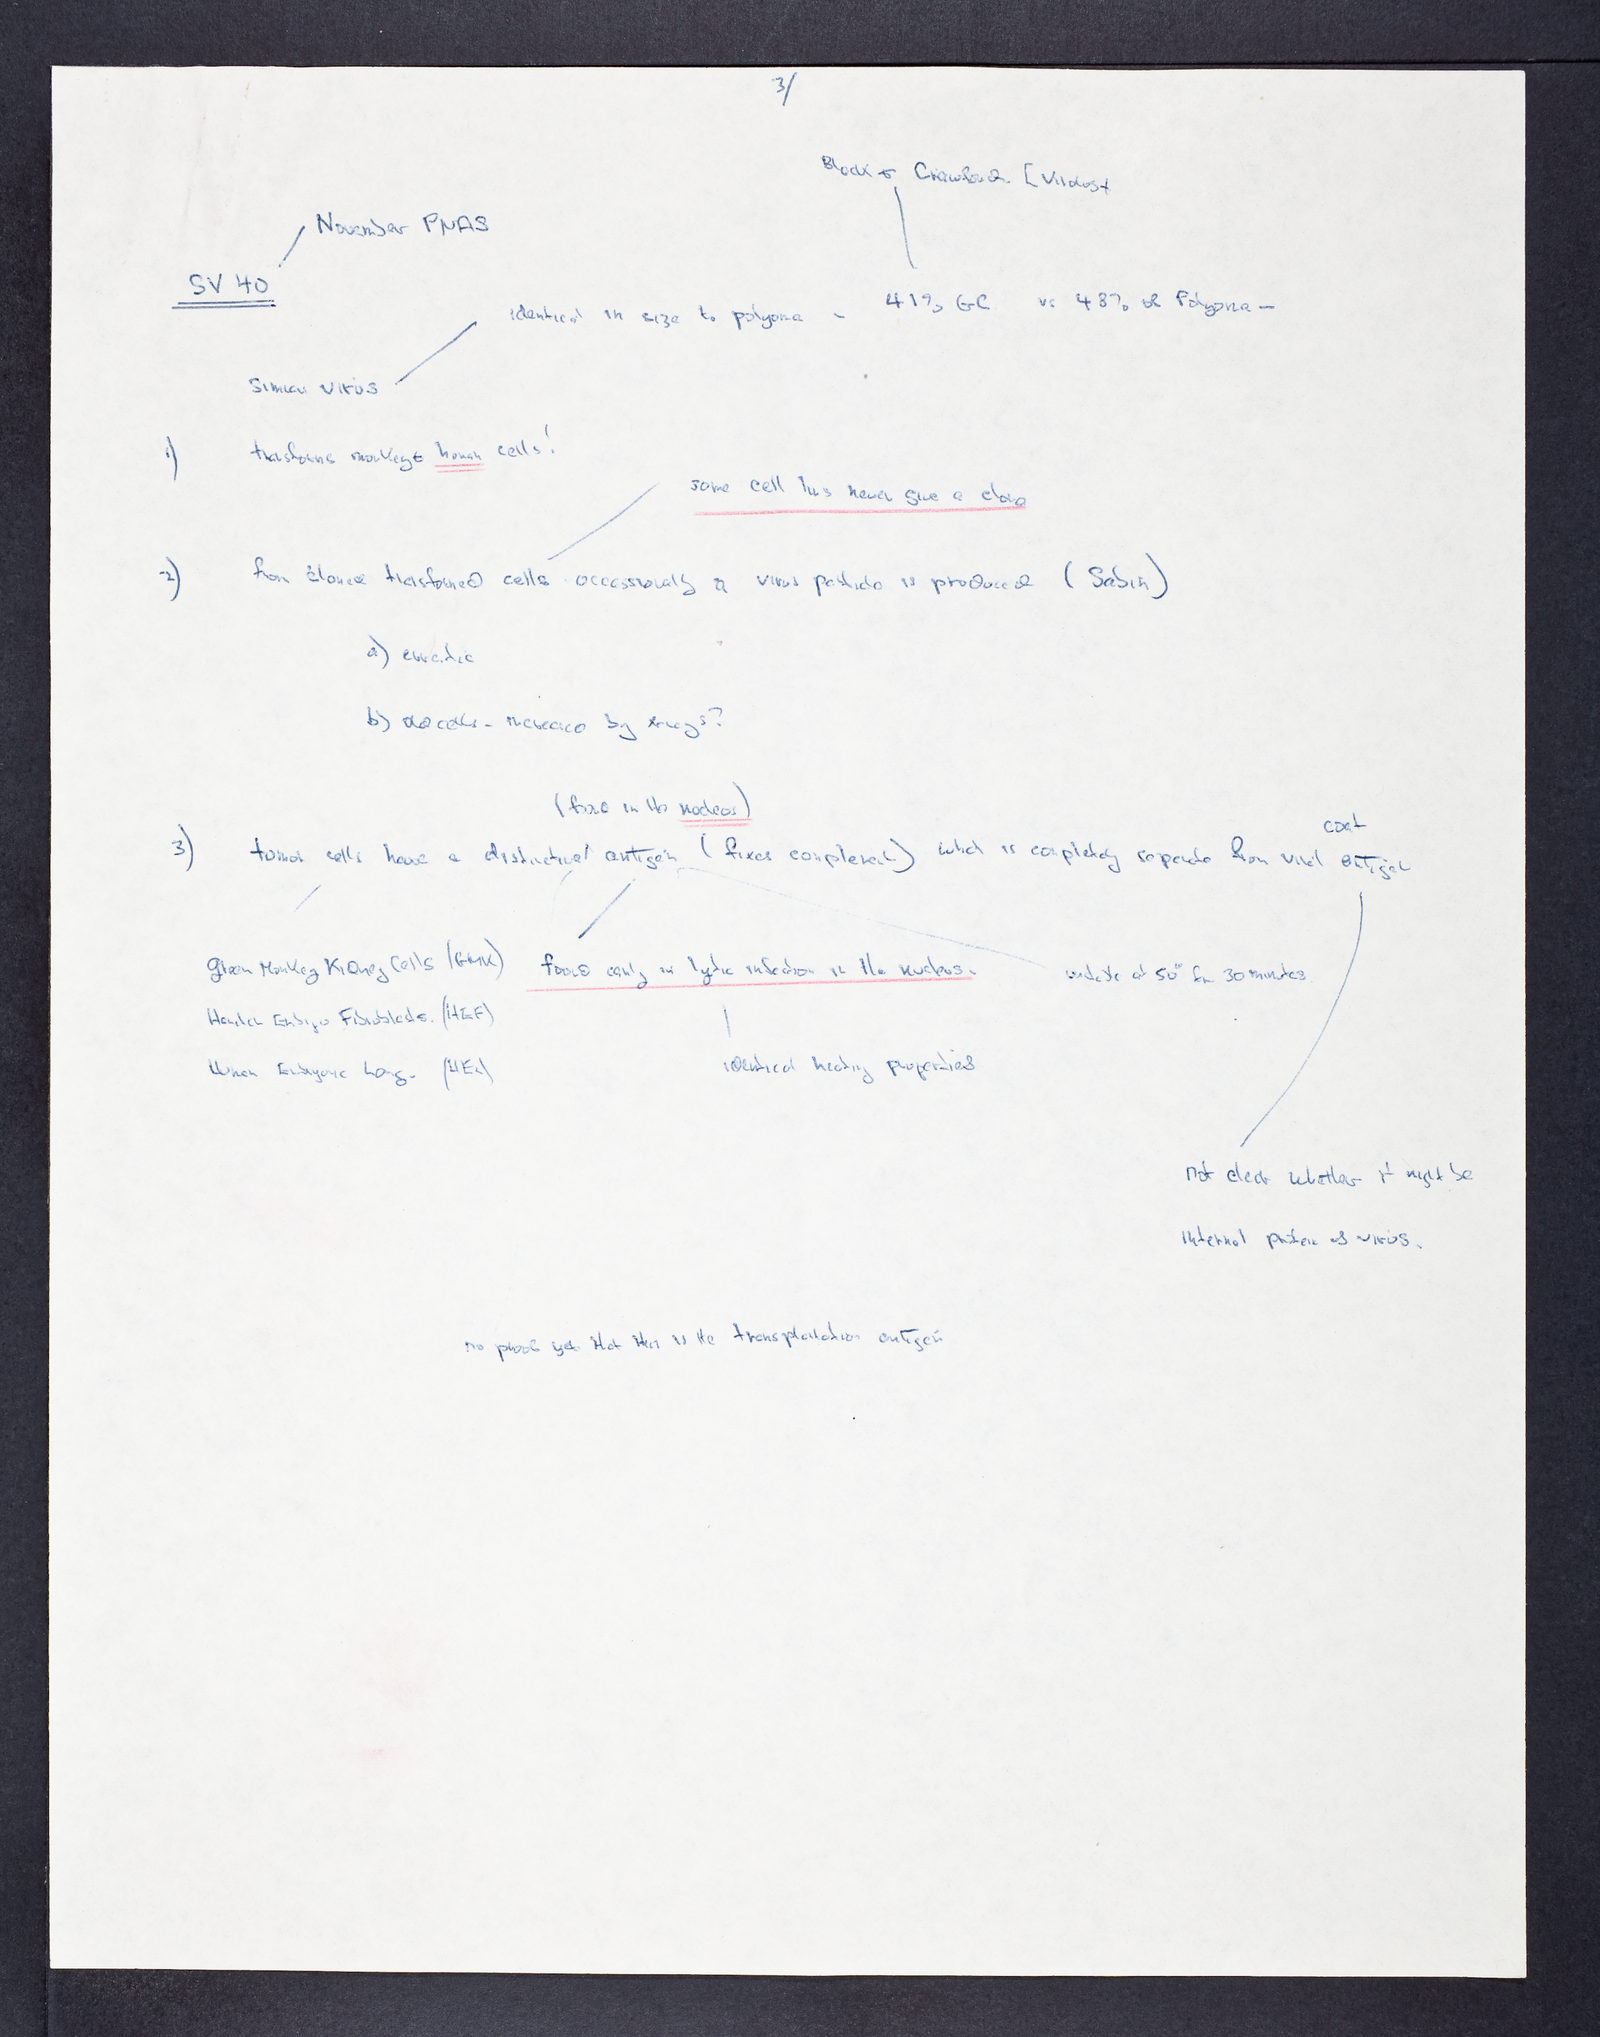 3/
Black & Crawford [Virology
November PNAS
SV 40
identical in size to polyoma - 41% GC vs 48% of Polyoma -
Simian virus
1) transforms monkey & human cells!
some cell lines never give a clone
2) from cloned transformed cells occassionally a virus particle is produced (Sabin)
a) erratic
b) increased by drugs?
(found in the nucleus)
coat
3) tumor cells have a distinctive antigen (fixes complement) which is completely separate from viral antigen
Green Monkey Kidney Cells (GMK) found early in lytic infection in the nucleus. at 50° for 30 minutes
Human Embryo Fibroblasts. (HEF)
Human Embryonic Lung. (HEL) identical heating properties
not clear whether it might be
internal protein of virus.
no proof yet that this is the transplantation antigen